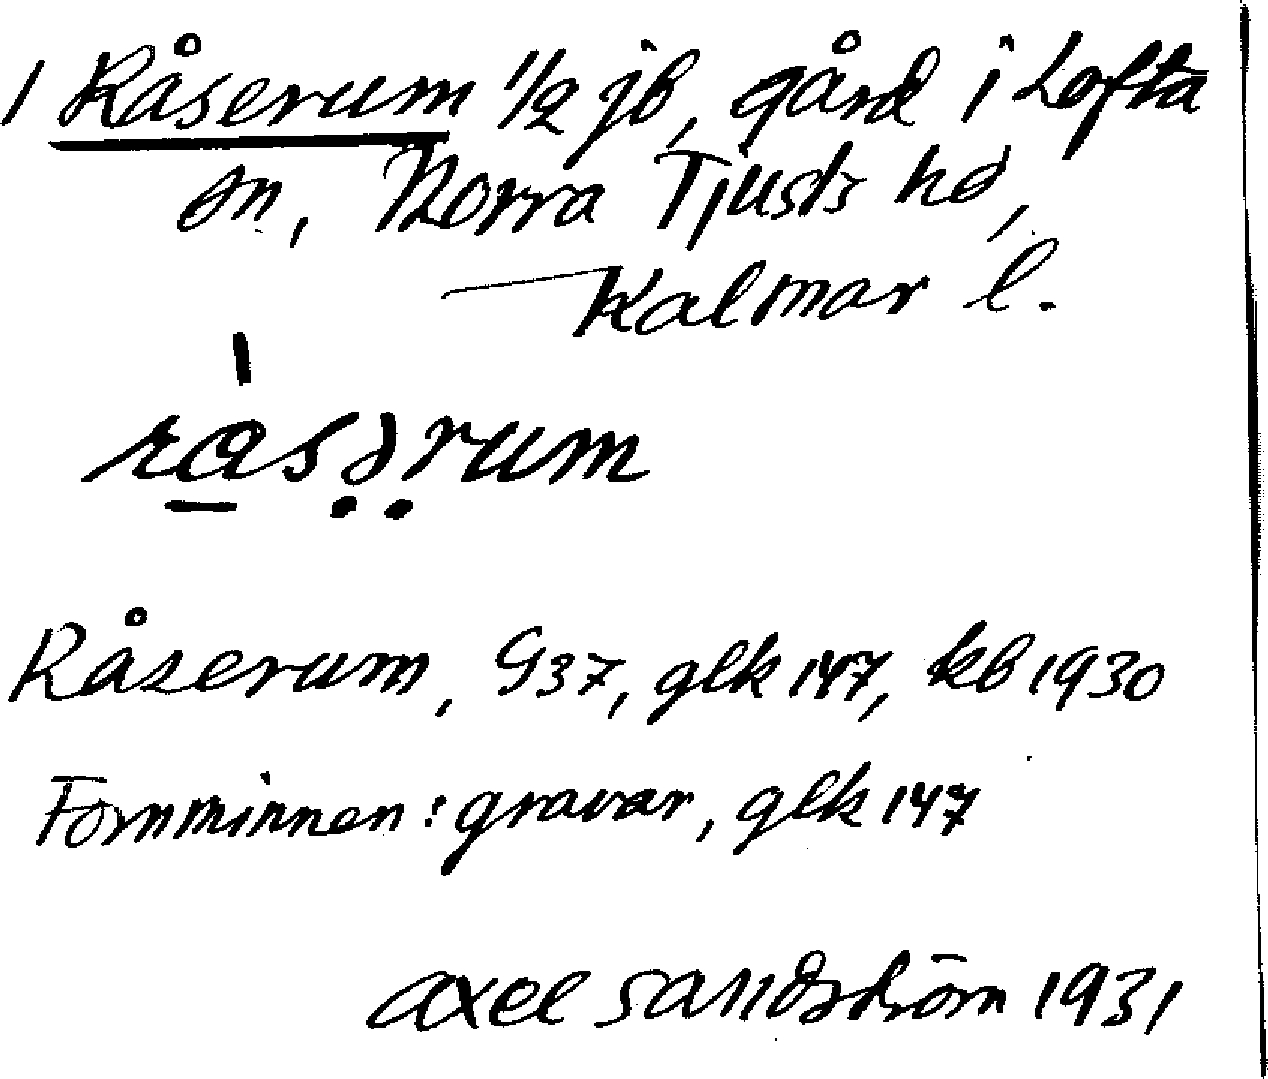 1 Råserum 1/2 jb, gård i Lofta
sn, Norra Tjusts hd,
Kalmar l.
råsərum
Råserum, G37, glk 147, kb 1930
Fornminnen: gravar, glk 147
Axel Sandström 1931